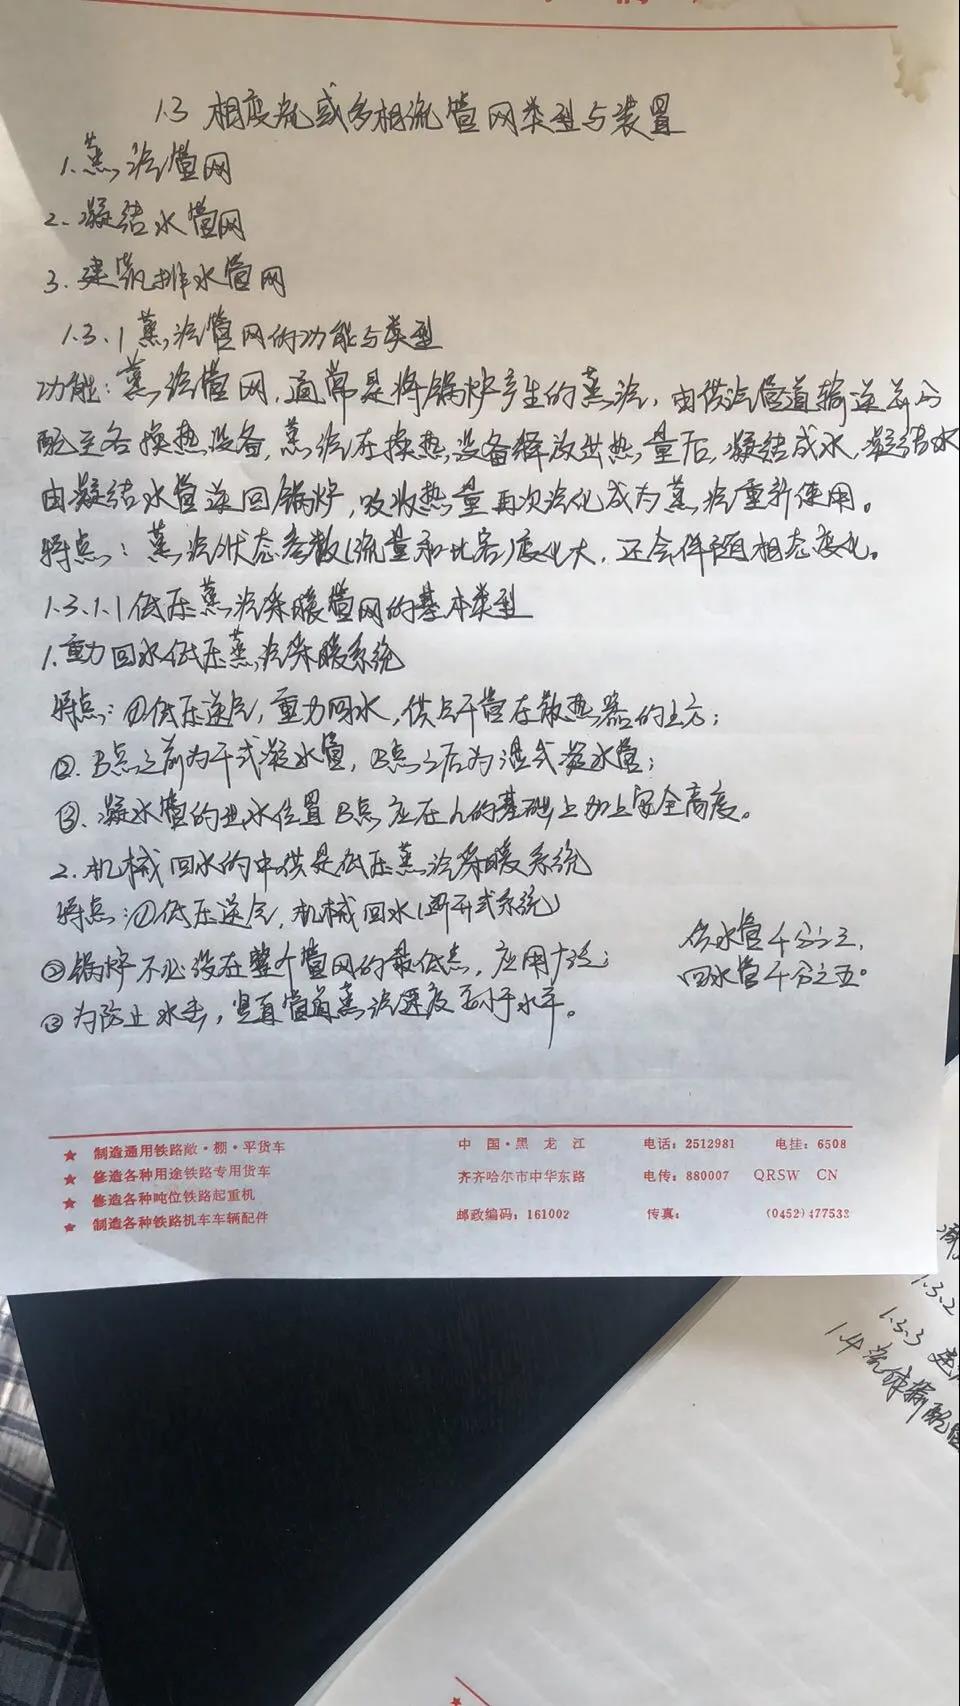 1.3 相变流或多相流管网类型与装置
1.蒸汽管网
2.凝结水管网
3.建筑排水管网
1.3.1蒸汽管网的功能与类型
功能：蒸汽管网，通常是将锅炉产生的蒸汽，由供汽管道输送并分
配至各换热设备，蒸汽在换热设备释放出热量后，凝结成水，凝结水
由凝结水管送回锅炉，吸收热量再次汽化成为蒸汽重新使用。
特点：蒸汽状态参数(流量和比容)变化大，还会伴随相态变化。
1.3.1.1低压蒸汽采暖管网的基本类型
1.重力回水低压蒸汽采暖系统
特点：①低压送气，重力回水，供气干管在散热器的上方；
②.B点之前为干式凝水管，B点之后为湿式凝水管；
③.凝水管的出水位置B点应在h的基础上加上安全高度。
2.机械回水的中供式低压蒸汽采暖系统
特点：①低压送气，机械回水(断开式系统)
②锅炉不必设在整个管网的最低点，应用广泛；
③为防止水击，竖直管道蒸汽速度要小于水平。
供水管千分之三，
回水管千分之五。
★ 制造通用铁路敞·棚·平货车
★ 修造各种用途铁路专用货车
★ 修造各种吨位铁路起重机
★ 制造各种铁路机车车辆配件
中 国·黑 龙 江
齐齐哈尔市中华东路
邮政编码：161002
电话：2512981 电挂：6508
电传：880007 QRSW CN
传真： (0452)477533
1.3.2
1.3.3 建
1.4 流体输配管